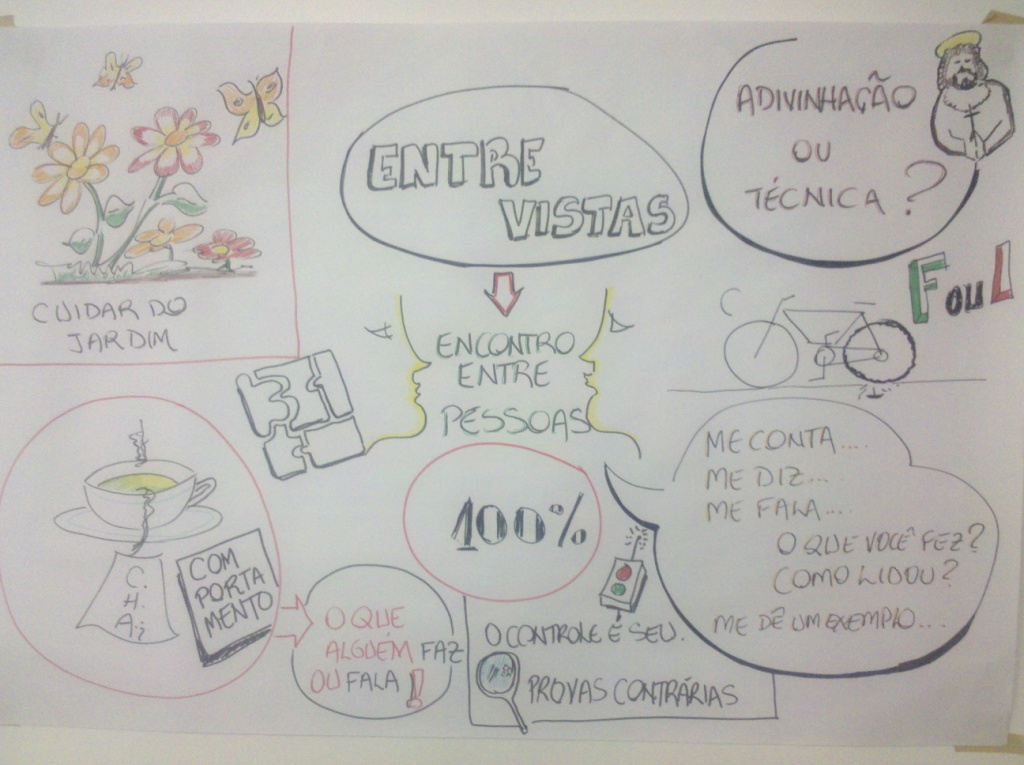 CUIDAR DO
JARDIM
ENTRE
VISTAS
ADIVINHAÇÃO
OU
TÉCNICA?
F OU I
ENCONTRO
ENTRE
PESSOAS
100%
ME CONTA....
ME DIZ...
ME FALA....
O QUE VOCÊ FEZ?
COMO LIDOU?
ME DÊ UM EXEMPLO....
C.
H.
A.
COM
PORTA
MENTO
O QUE
ALGUÉM FAZ
OU FALA!
O CONTROLE É SEU.
PROVAS CONTRÁRIAS